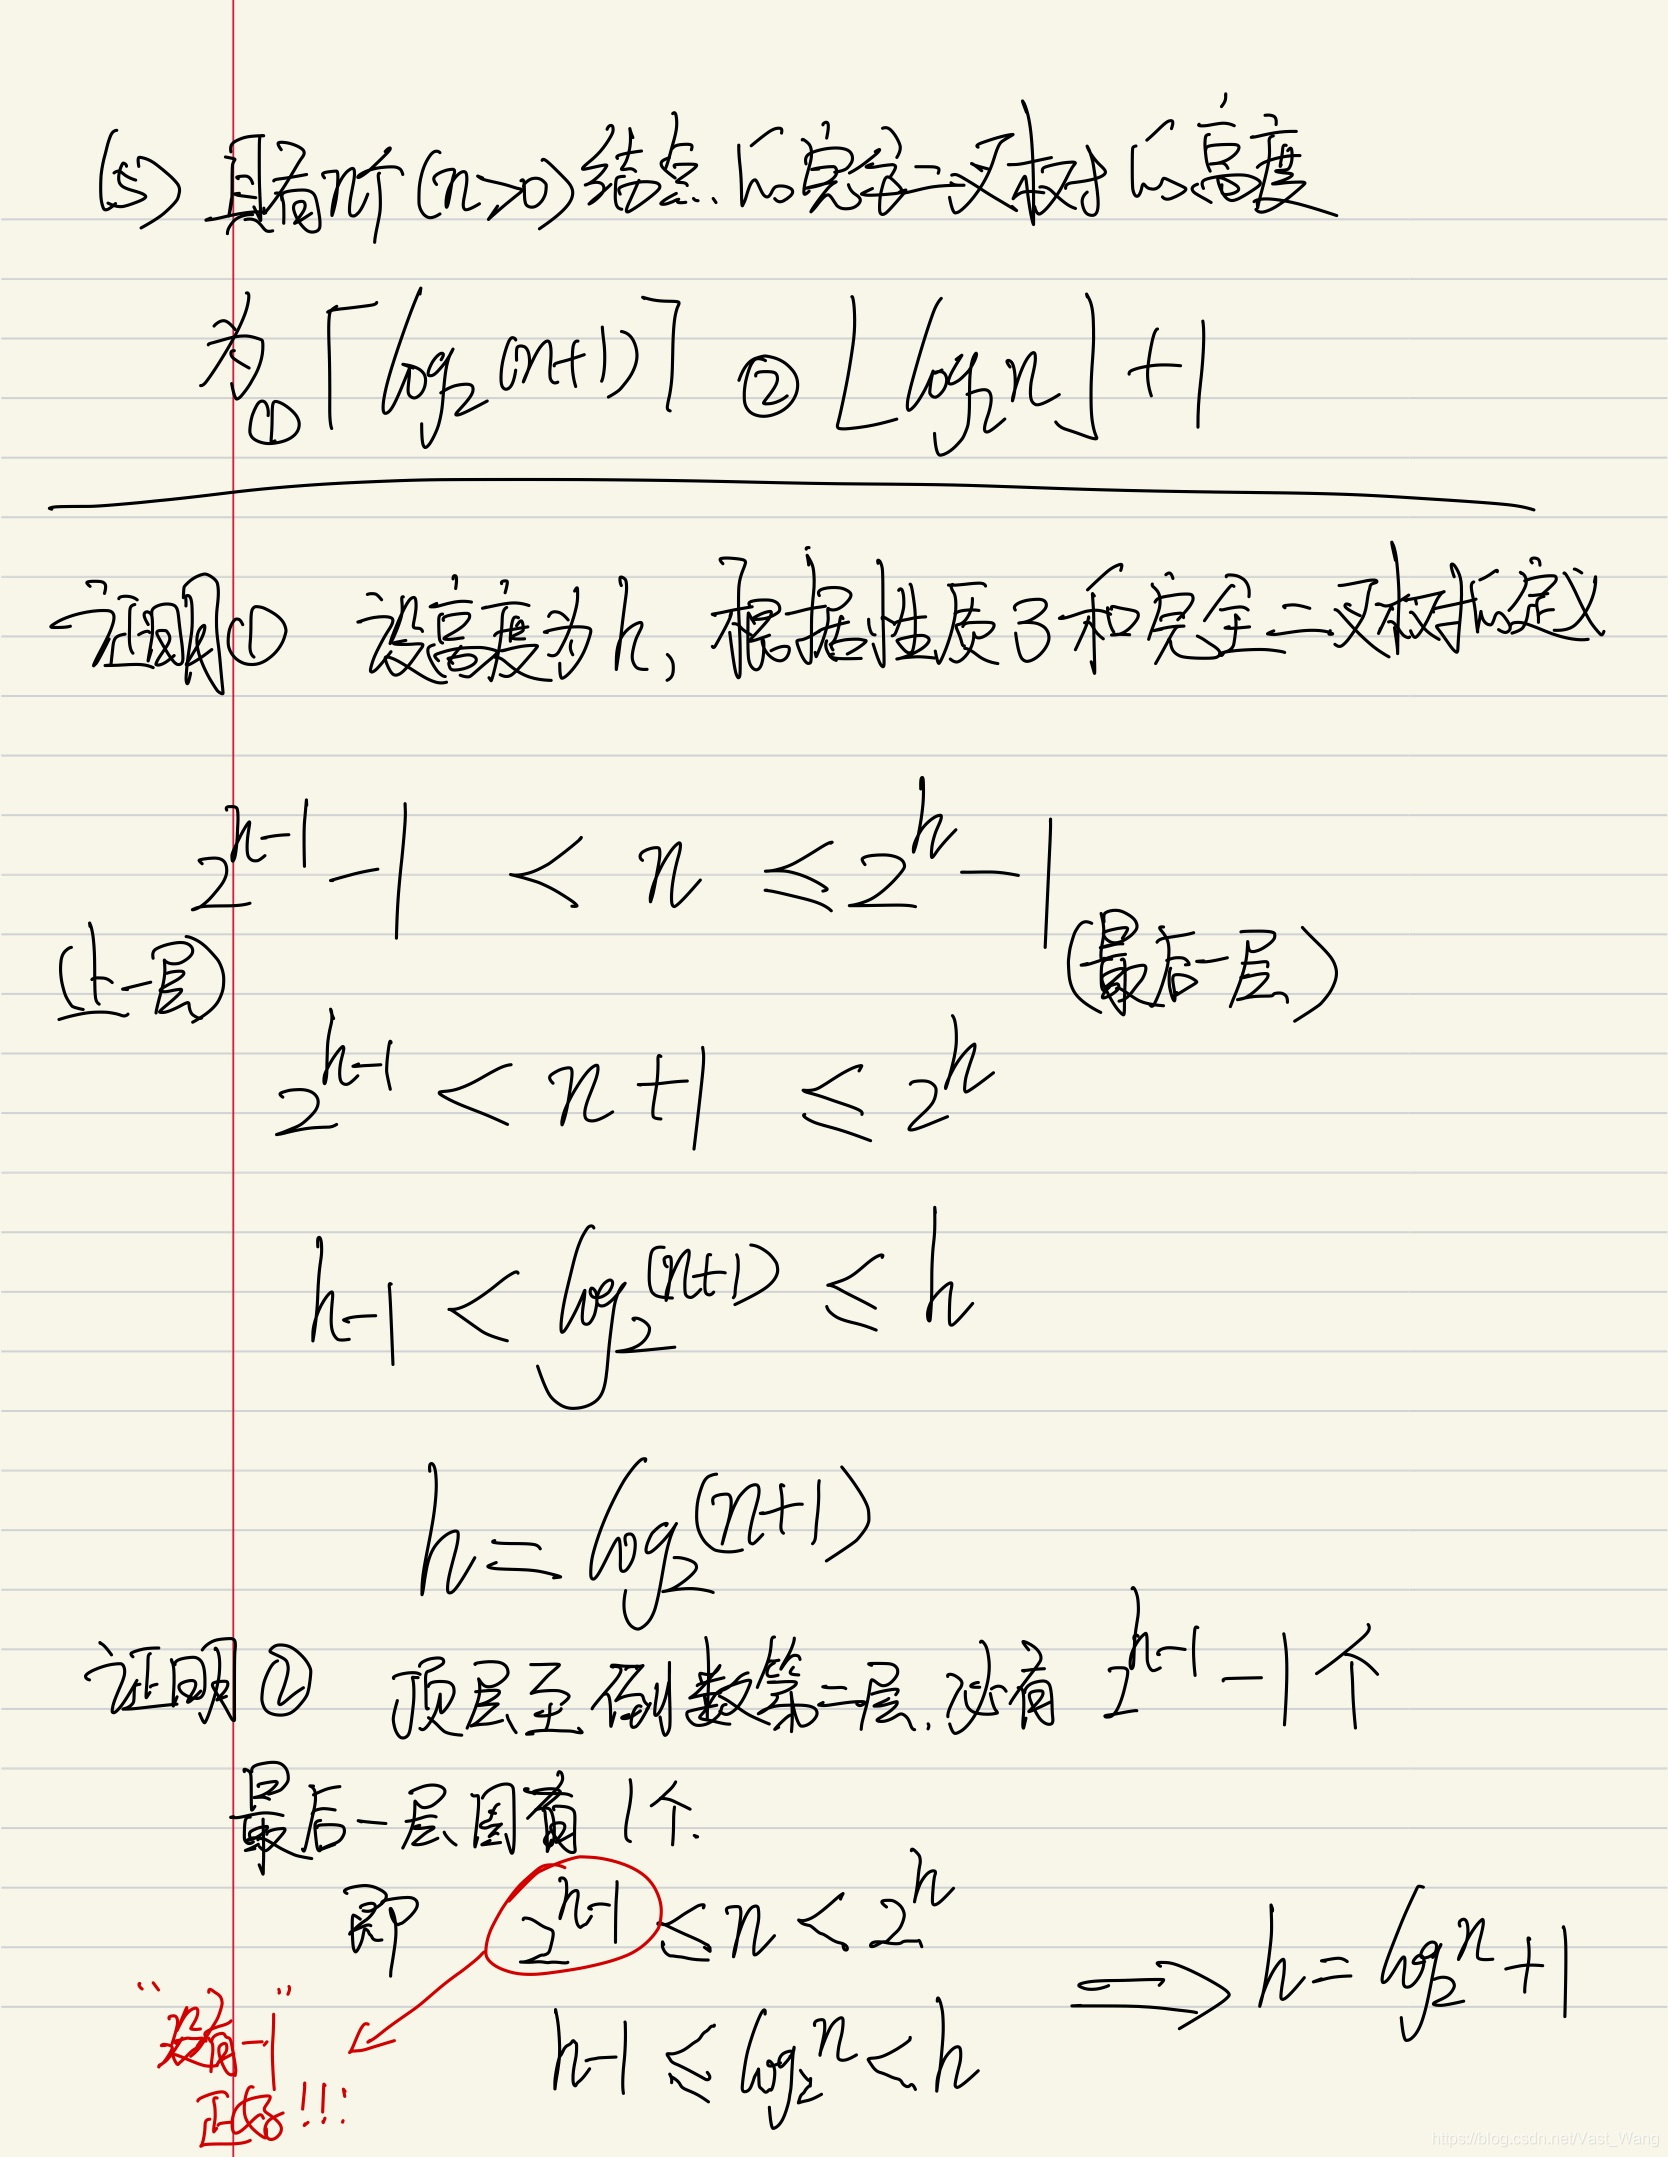 (5) 具有n个(n>0)结点的完全二叉树的高度
为 ① ⌈log₂(n+1)⌉ ② ⌊log₂n⌋+1
证明① 设高度为h, 根据性质3和完全二叉树的定义
2^(h-1) - 1 < n ≤ 2^h - 1
(上一层) (最后一层)
2^(h-1) < n+1 ≤ 2^h
h-1 < log₂(n+1) ≤ h
h = log₂(n+1)
证明② 顶层至倒数第二层, 必有 2^(h-1) - 1个
最后一层 有 1个.
即 2^(h-1) ≤ n < 2^h
h-1 ≤ log₂n < h ⟹ h = log₂n + 1
"没有-1"
正好!!!
https://blog.csdn.net/Vast_Wang